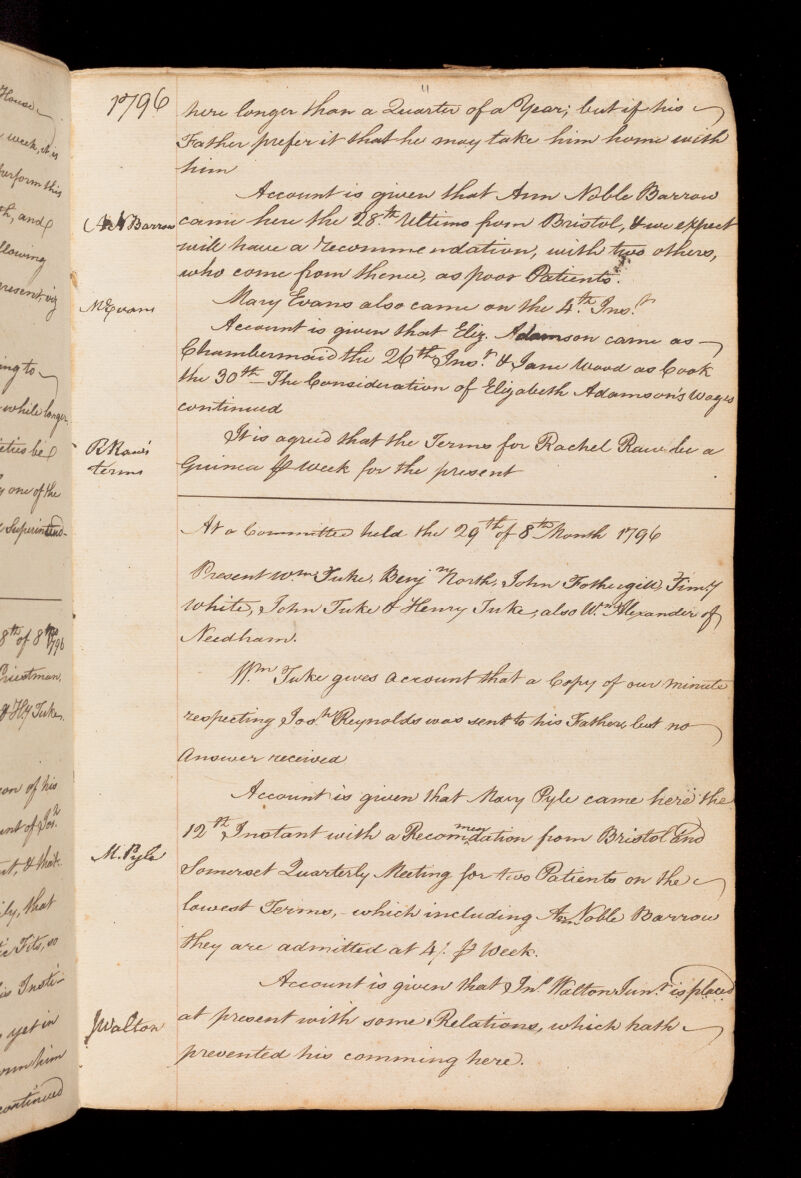 11
1796
here longer than a Quarter of a Year; but if his
Father prefer it that he may take him home with
him
Account is given that Ann Noble Barrow
A N Barrow
came here the 28.th Ultimo from Bristol, & we expect
will have a recommendation, with two others,
who come from thence, as poor Patients.
M Evans
Mary Evans also came on the 4.th Ins.t
Account is given that Eliz. Adamson came as
Chambermaid the 26th Ins.t & Jane Wood as Cook
the 30th - The Consideration of Elizabeth Adamson's Wages
continued
R Raw's
terms
It is agreed that the Terms for Rachel Raw be a
Guinea ⅌ Week for the present
At a Committee held the 29th of 8th Month 1796
Present Wm Tuke, Benj.n North, John Fothergill, Tim.y
White, John Tuke & Henry Tuke, also W.m Alexander of
Needham.
W.m Tuke gives account that a Copy of our minute
respecting Jos.h Reynolds was sent to his Father, but no
Answer received
Account is given that Mary Pyle came here the
M. Pyle
12th Instant with a Recommendation from Bristol and
Somerset Quarterly Meeting for two Patients on the
lowest Terms, - which including Ann Noble Barrow
they are admitted at 4/. ⅌ Week.
Account is given that Jn.o Walton Jun.r is placed
J Walton
at present with some Relations, which hath
prevented his comming here.
House
week, it is
perform this
th, and
llowing
resent, viz
ing to
while longer
one of the
Superintend-
8th of 8 mo
1796
Priestman
& Hy Tuke.
on of his
unt of Jos.h
ut, & that
ily, that
ic Fits, so
is Insti-
yet in
him
continued